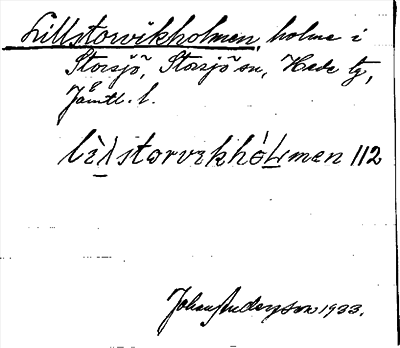 Lillstorvikholmen, holme i
Storsjö, Storsjö sn, Hede tg,
Jämtl. l.
lìlstorvikhólmen 112
Johan Anderson 1933.